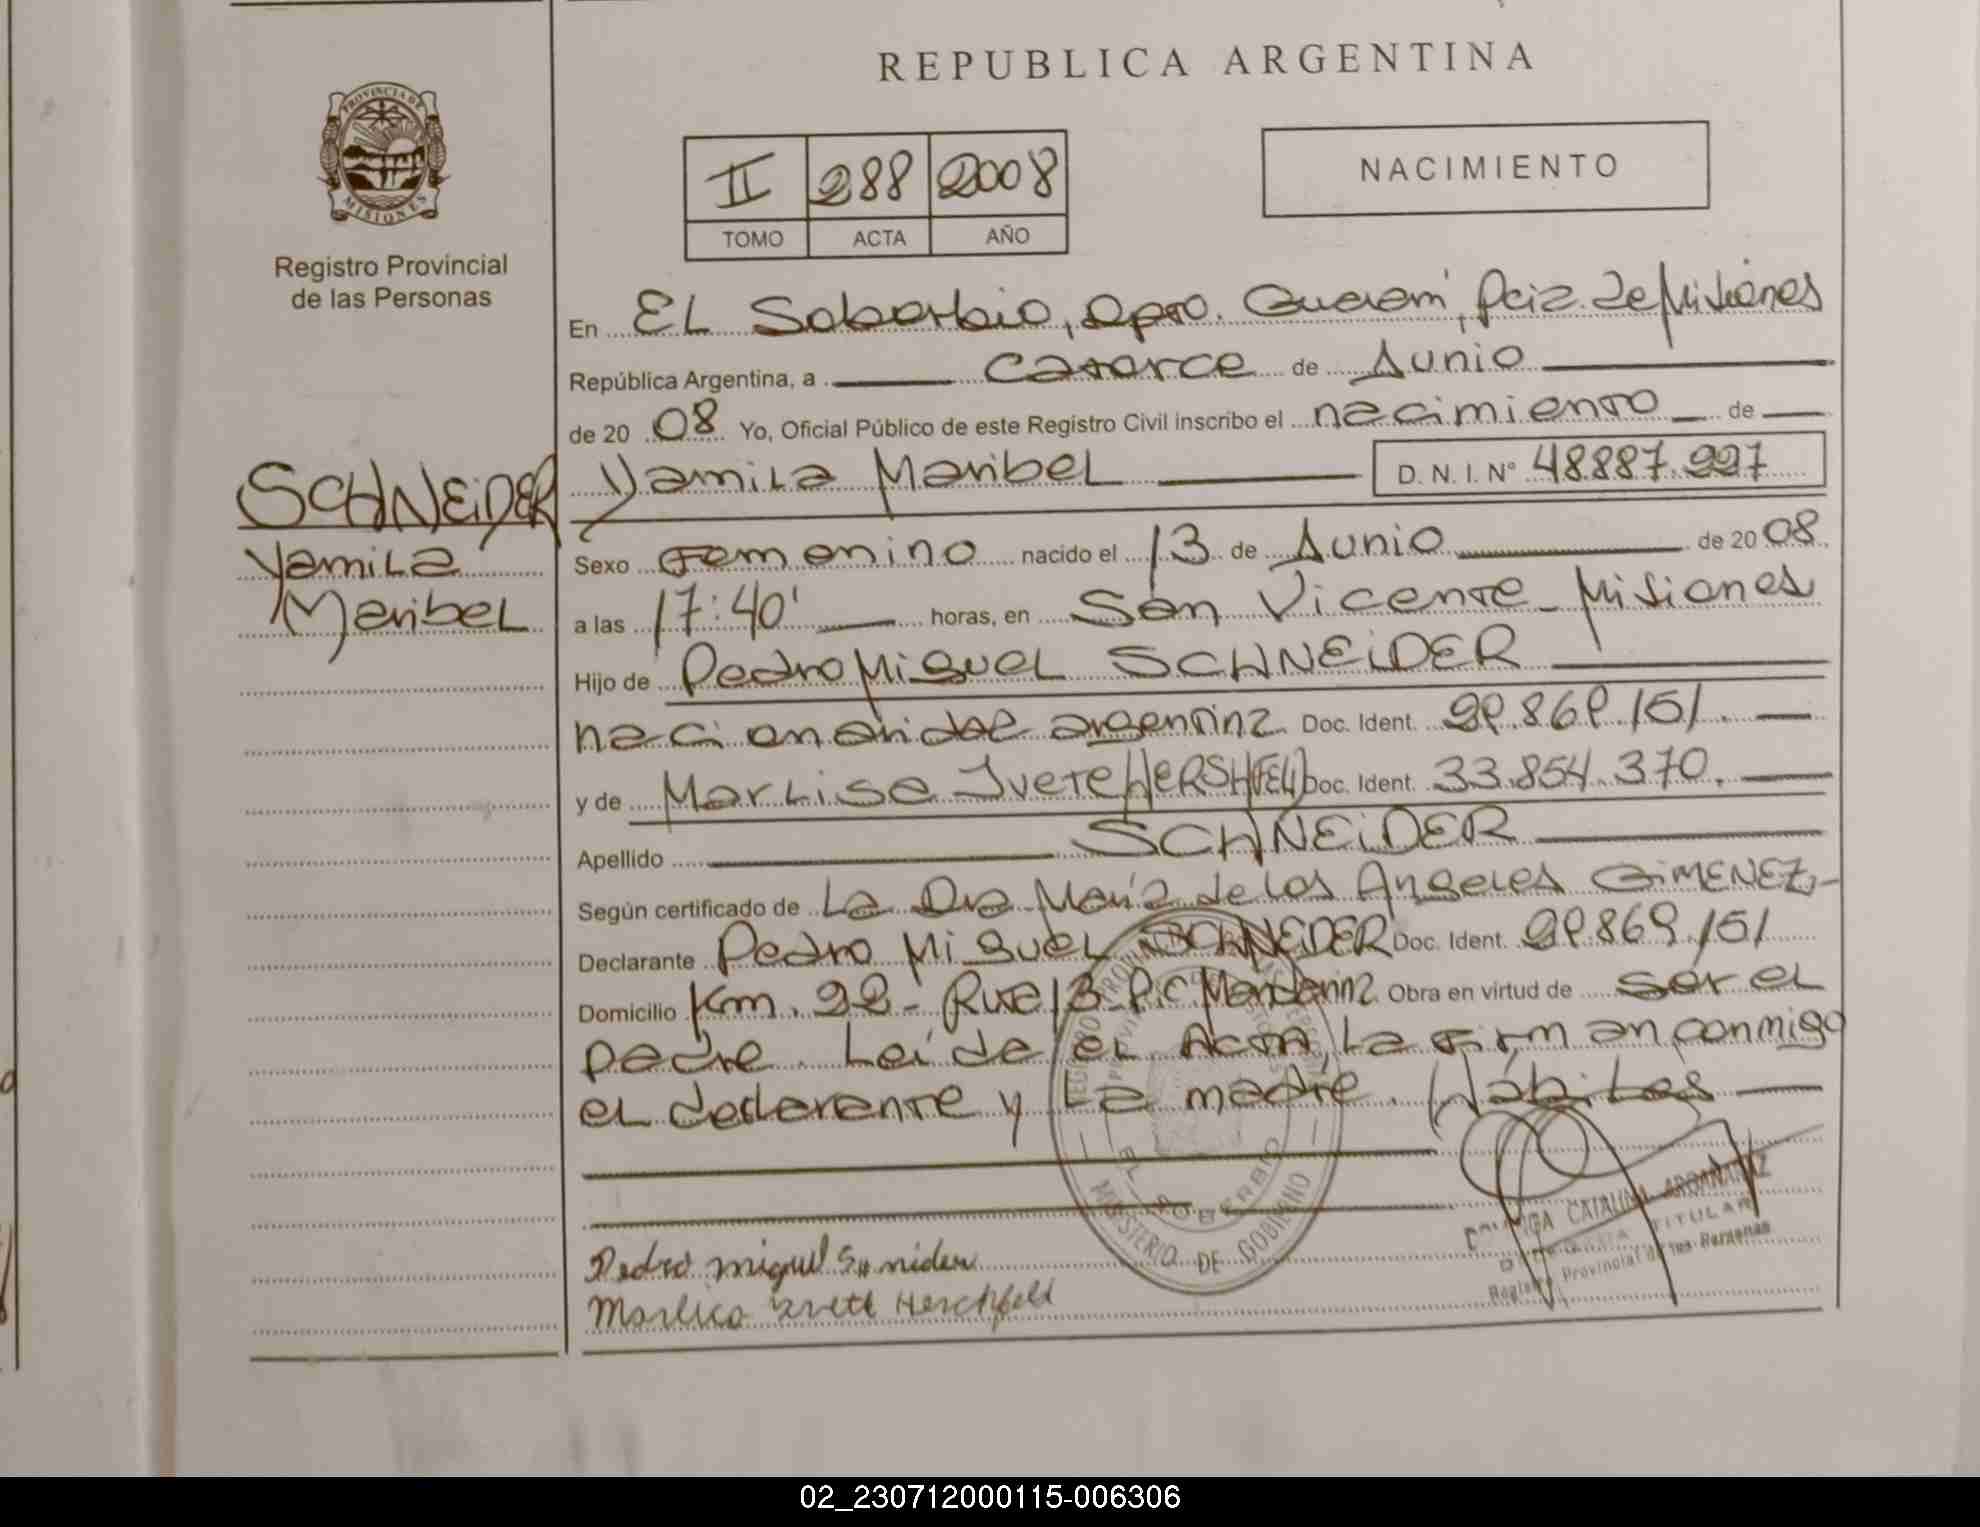 REPUBLICA ARGENTINA
PROVINCIA DE
MISIONES
Registro Provincial
de las Personas
II 288 2008
TOMO ACTA AÑO
NACIMIENTO
En EL Soberbio, Dpto. Guaraní, Pcia. de Misiones
República Argentina, a catorce de Junio
de 20 08 Yo, Oficial Público de este Registro Civil inscribo el nacimiento de
SCHNEIDER
Yamila
Maribel
Yamila Maribel D. N. I. N° 48887.227
Sexo Femenino nacido el 13 de Junio de 20 08
a las 17:40' horas, en San Vicente - Misiones
Hijo de Pedro Miguel SCHNEIDER
nacionalidad argentina Doc. Ident. 29.869.151.
y de Marlise Ivete HERSHFELD Doc. Ident. 33.854.370.
Apellido SCHNEIDER
Según certificado de La Dra María de los Angeles GIMENEZ.-
Declarante Pedro Miguel SCHNEIDER Doc. Ident. 29.869.151
Domicilio Km. 22 - Ruta 13 - Pic Mandarina Obra en virtud de ser el
padre. Leída el Acta, la firman conmigo
el declarante y la madre. Hábiles
EL SOBERBIO
MINISTERIO DE GOBIERNO
CATALINA
TITULAR
Registro Provincial de las Personas
Pedro miguel
Marlice Herchfeld
02_230712000115-006306